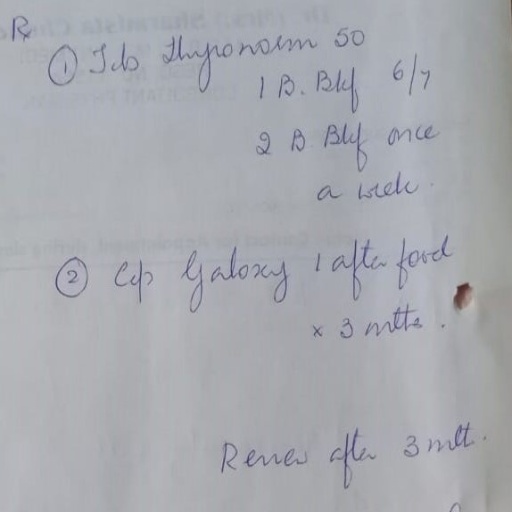 Rx
① Tab Thyronorm 50
1 B. Bkf 6/7
2 B Bkf once
a week.
② Cap Galoxy 1 after food
x 3 mths.
Review after 3 mth.